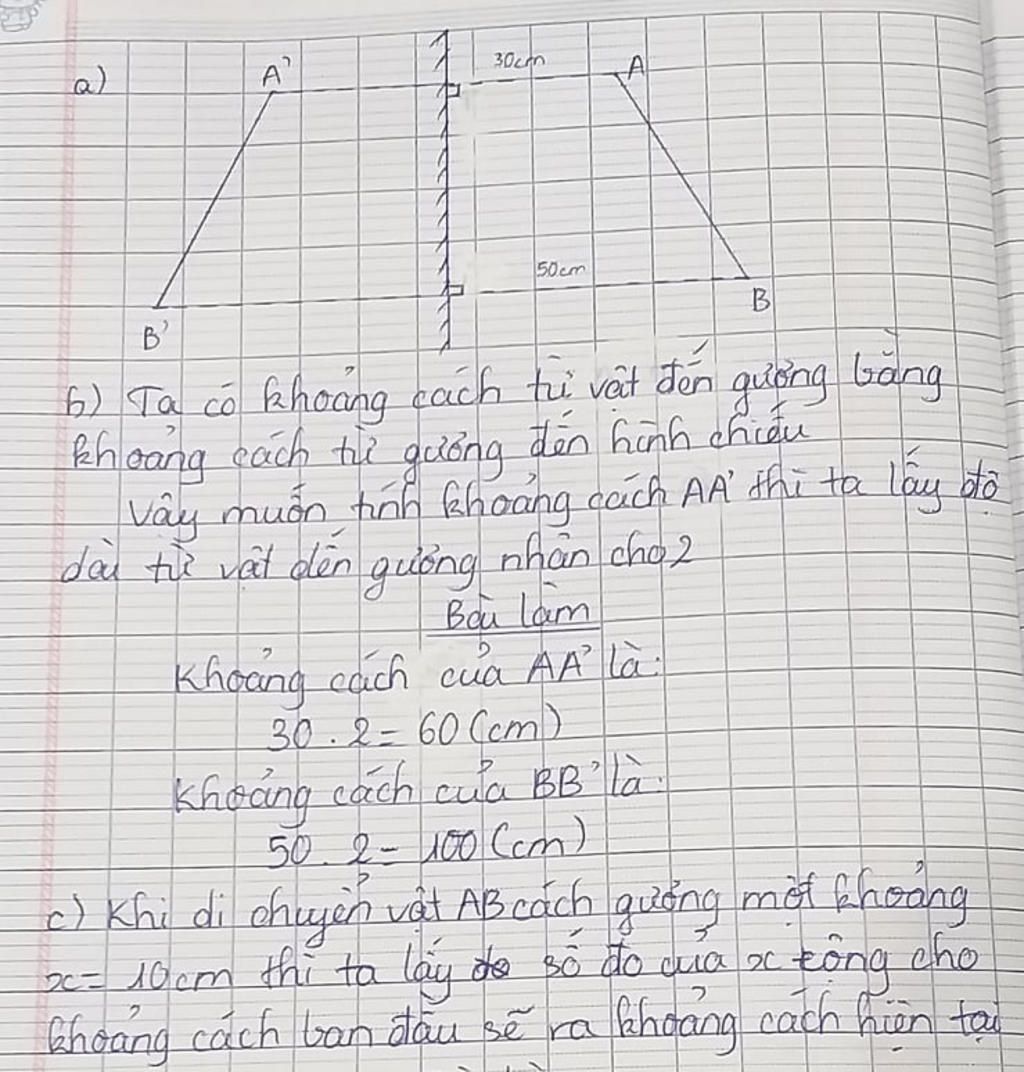 a)
A'
30cm
A
50cm
B'
B
b) Ta có khoảng cách từ vật đến gương bằng
khoảng cách từ gương đến hình chiếu
Vậy muốn tính khoảng cách AA' thì ta lấy độ
dài từ vật đến gương nhân cho 2
Bài làm
Khoảng cách của AA' là:
30 . 2 = 60 (cm)
Khoảng cách của BB' là:
50 . 2 = 100 (cm)
c) Khi di chuyển vật AB cách gương một khoảng
x = 10cm thì ta lấy số đo của x công cho
khoảng cách ban đầu sẽ ra khoảng cách hiện tại